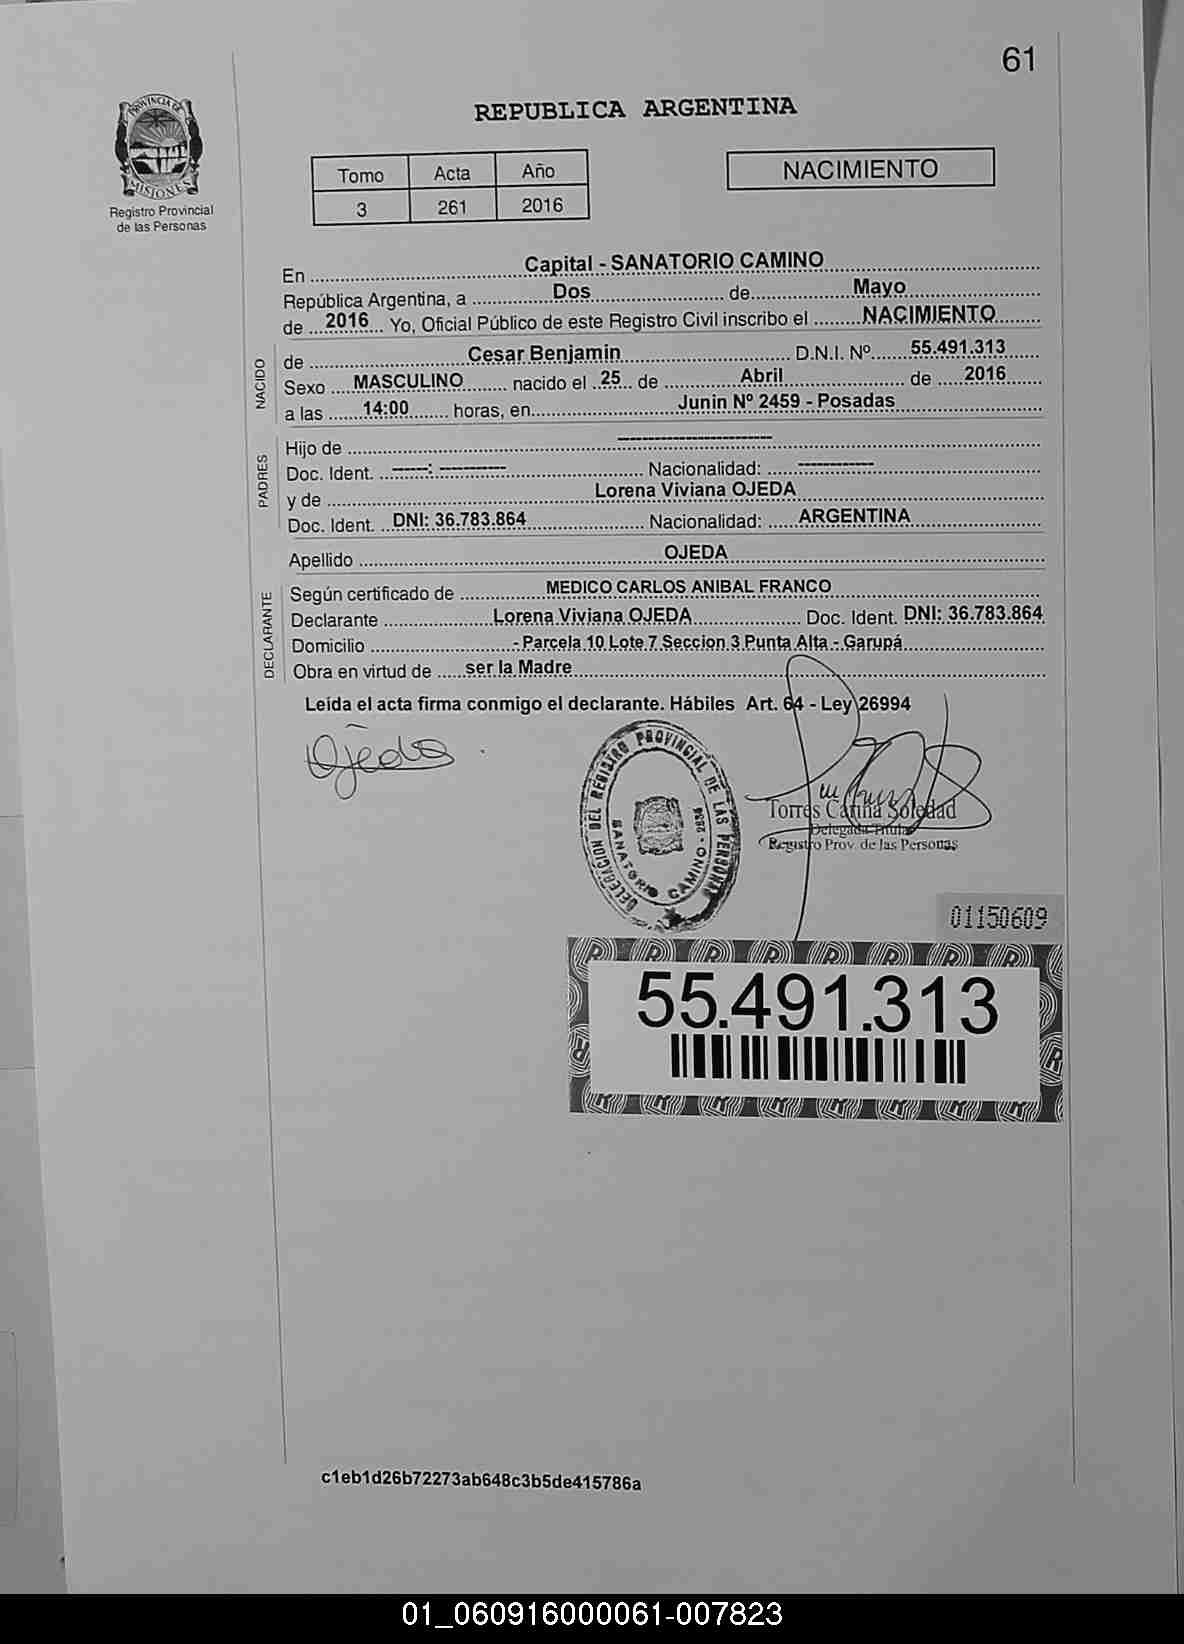 61
PROVINCIA DE
MISIONES
Registro Provincial
de las Personas
REPUBLICA ARGENTINA
Tomo Acta Año
3 261 2016
NACIMIENTO
En Capital - SANATORIO CAMINO
República Argentina, a Dos de Mayo
de 2016 Yo, Oficial Público de este Registro Civil inscribo el NACIMIENTO
NACIDO
de Cesar Benjamin D.N.I. Nº 55.491.313
Sexo MASCULINO nacido el 25 de Abril de 2016
a las 14:00 horas, en Junin Nº 2459 - Posadas
PADRES
Hijo de -------------------------
Doc. Ident. -----: ---------- Nacionalidad: ------------
y de Lorena Viviana OJEDA
Doc. Ident. DNI: 36.783.864 Nacionalidad: ARGENTINA
Apellido OJEDA
DECLARANTE
Según certificado de MEDICO CARLOS ANIBAL FRANCO
Declarante Lorena Viviana OJEDA Doc. Ident. DNI: 36.783.864
Domicilio - Parcela 10 Lote 7 Seccion 3 Punta Alta - Garupá
Obra en virtud de ser la Madre
Leída el acta firma conmigo el declarante. Hábiles Art. 64 - Ley 26994
Ojeda
DELEGACION DEL REGISTRO PROVINCIAL DE LAS PERSONAS
SANATORIO CAMINO - 2888
Torres Carina Soledad
Delegada Titular
Registro Prov. de las Personas
01150609
55.491.313
c1eb1d26b72273ab648c3b5de415786a
01_060916000061-007823